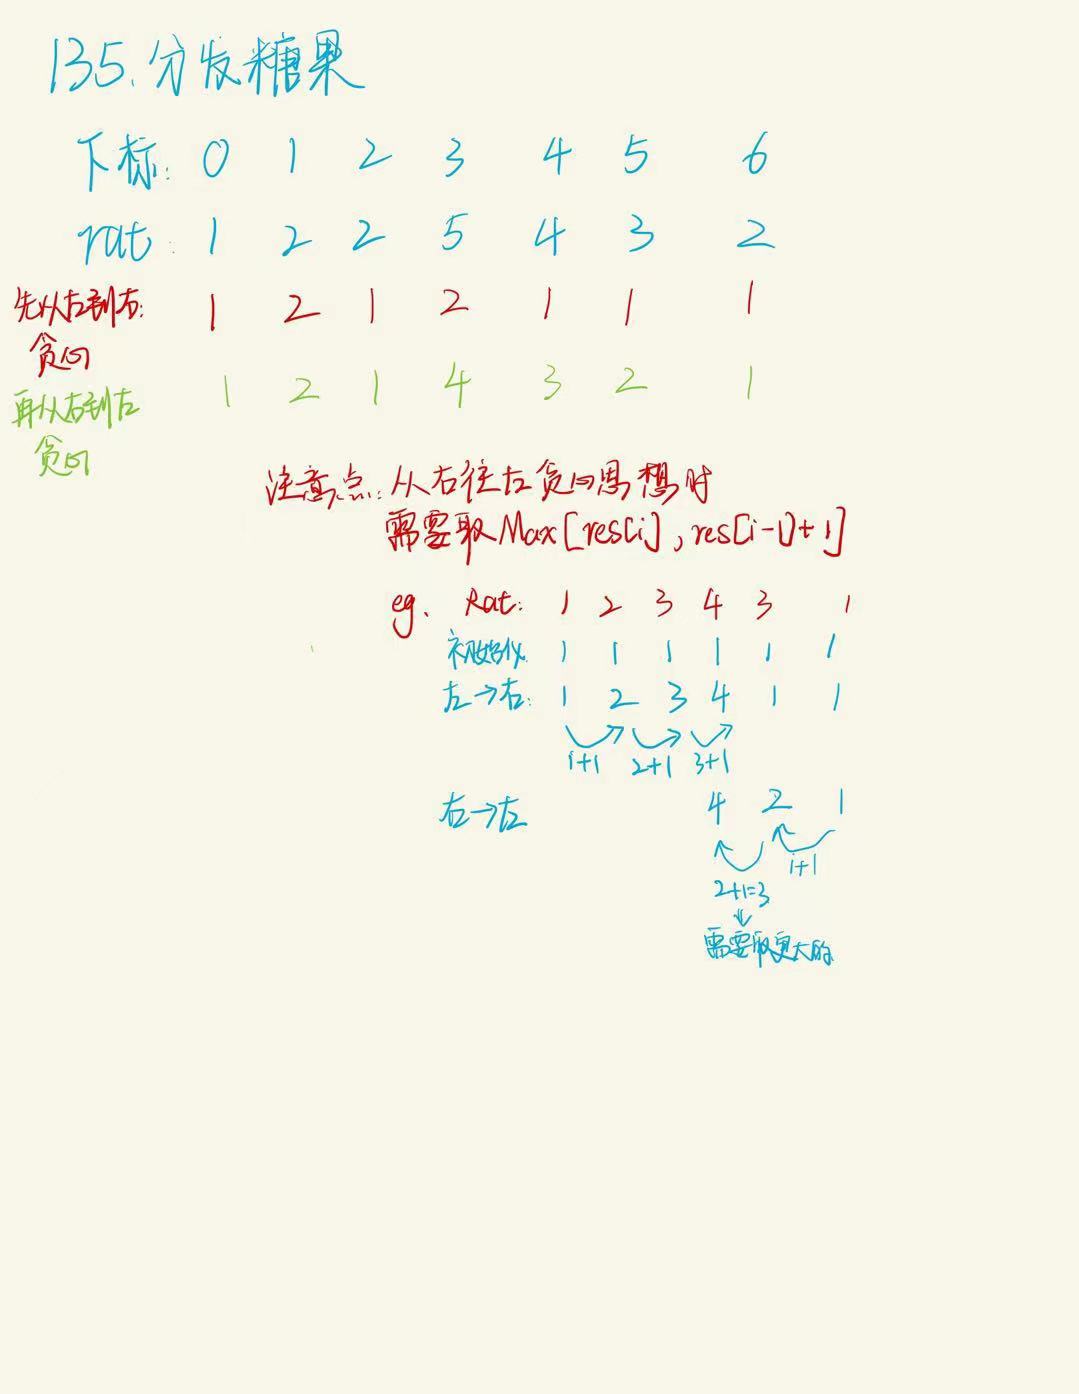 135.分发糖果
下标: 0 1 2 3 4 5 6
rat: 1 2 2 5 4 3 2
先从左到右: 1 2 1 2 1 1 1
贪心
再从右到左 1 2 1 4 3 2 1
贪心
注意点: 从右往左贪心思想时
需要取Max[res[i], res[i-1]+1]
eg. Rat: 1 2 3 4 3 1
初始化 1 1 1 1 1 1
左→右: 1 2 3 4 1 1
1+1 2+1 3+1
右→左 4 2 1
1+1
2+1=3
需要取更大的